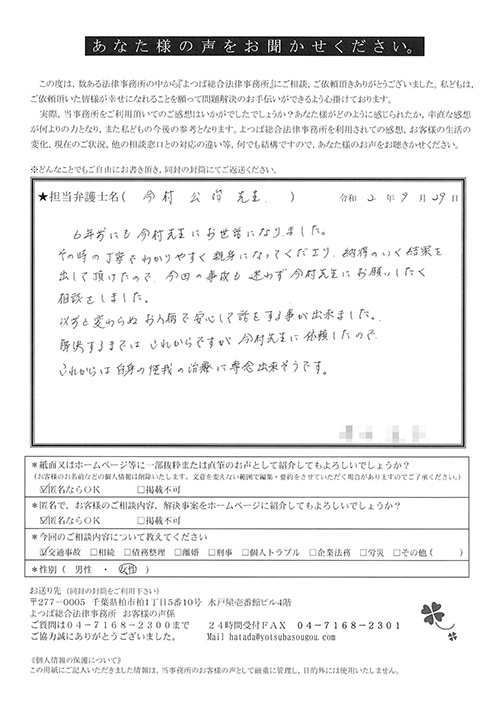 あなた様の声をお聞かせください。
この度は，数ある法律事務所の中から『よつば総合法律事務所』にご相談，ご依頼頂きありがとうございました。私どもは，
ご依頼頂いた皆様が幸せになれることを願って問題解決のお手伝いができるよう心掛けております。
実際，当事務所をご利用頂いてのご感想はいかがでしたでしょうか？あなた様がどのように感じられたか，率直な感想
が何よりの力となり，また私どもの今後の参考となります。よつば総合法律事務所を利用されての感想，お客様の生活の
変化，現在のご状況，他の相談窓口との対応の違い等，何でも結構ですので，あなた様のお声をお聴きかせください。
※どんなことでもご自由にお書き頂き，同封の封筒にてご返送ください。
★担当弁護士名（ 今村 公治 先生 ） 令和 2 年 9 月 29 日
6年前にも今村先生にお世話になりました。
その時の丁寧でわかりやすく親身になってくださり、納得のいく結果を
出して頂けたので、今回の事故も迷わず今村先生にお願いしたく
相談をしました。
以前と変わらぬお人柄で安心して話をする事が出来ました。
解決するまでは これからですが 今村先生に依頼したので
これからは自身の怪我の治療に専念出来そうです。
＊紙面又はホームページ等に一部抜粋または直筆のお声として紹介してもよろしいでしょうか？
（お客様のお名前などの個人情報は削除いたします。文意を変えない範囲で編集・要約をさせていただく場合がありますのでご了承ください。）
☑匿名ならOK □掲載不可
＊匿名で，お客様のご相談内容，解決事案をホームページに紹介してもよろしいでしょうか？
☑匿名ならOK □掲載不可
＊今回のご相談内容について教えてください
☑交通事故 □相続 □債務整理 □離婚 □刑事 □個人トラブル □企業法務 □労災 □その他（ ）
＊性別（ 男性 ・ 女性 ）
お送り先（同封の封筒をご利用下さい）
〒277－0005 千葉県柏市柏1丁目5番10号 水戸屋壱番館ビル4階
よつば総合法律事務所 お客様の声係
ご質問は04－7168－2300まで 24時間受付FAX 04－7168－2301
ご協力誠にありがとうございました。 Mail hatada@yotsubasougou.com
《個人情報の保護について》
この用紙にご記入いただきました情報は，当事務所のお客様の声として厳重に管理し，目的外には使用いたしません。